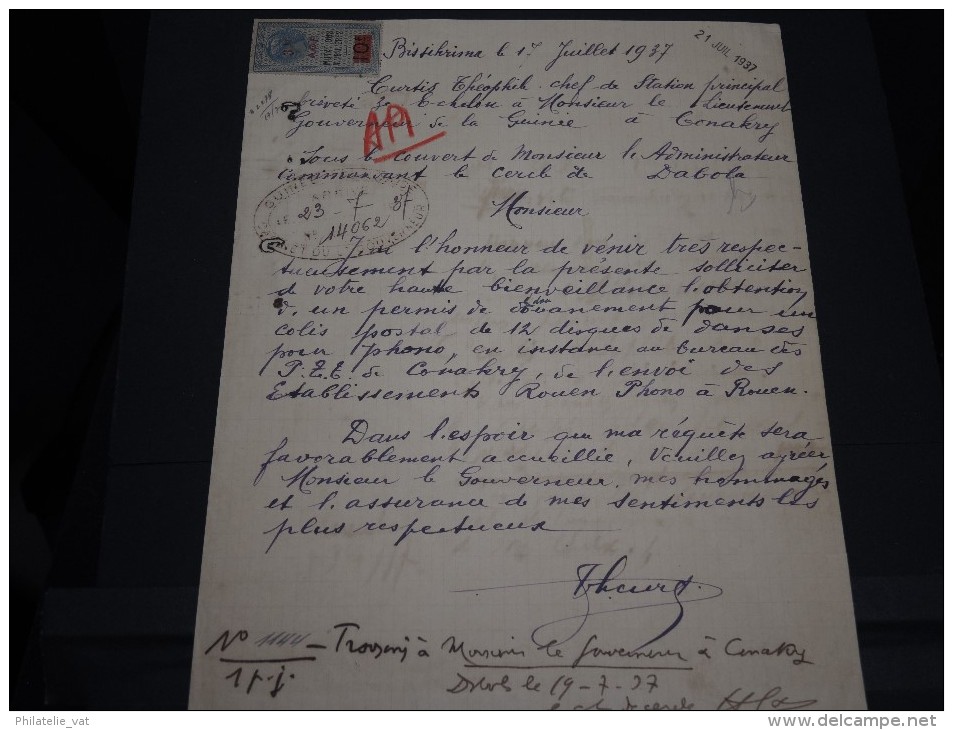 Bissikrima le 17 Juillet 1937
21 JUIL 1937
Curtis Théophile chef de Station principal
briveté 3e Echelon à Monsieur le Lieutenent
Gouverneur de la Guinée à Conakry
API
Sous le couvert de Monsieur le Administrateur
Commandant le cercle de Dabola
23-7 37
14062
Monsieur
J'ai l'honneur de vénir très respec-
tueusement par la présente solliciter
de votre haute bienveillance l'obtention
d'un permis de dédouanement pour un
colis postal de 12 disques de danses
pour phono, en instance au bureau des
P.T.T. de Conakry, de l'envoi des
Etablissements Rouen Phono à Rouen.
Dans l'espoir que ma réquête sera
favorablement accueillie, Veuillez agréer
Monsieur le Gouverneur, mes hommagés
et l'assurance de mes sentiments les
plus respectueux
Th. Curtis
N° 1144 – Transmis à Monsieur le Gouverneur à Conakry
1 p.j. Dabola le 19-7-37
Philatelie_vat
http://www.delcampe.net